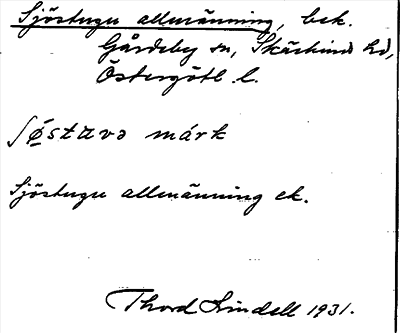 Sjöstugu allmänning, bek.
Gårdeby sn, Skärkinds hd,
Östergötl. l.
ʃøstavə márk
Sjöstugu allmänning ek.
Thord Lindell 1931.